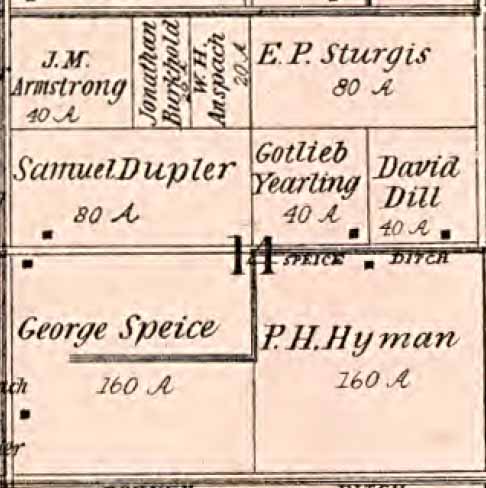 J.M.
Armstrong
40 A
Jonathan
Burkhold
20 A
W.H.
Anspach
20 A
E.P. Sturgis
80 A
Samuel Dupler
80 A
Gotlieb
Yearling
40 A
David
Dill
40 A
14
SPEICE DITCH
George Speice
160 A
P.H. Hyman
160 A
DITCH